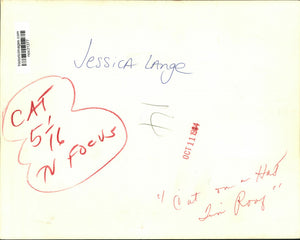 Jessica Lange
CAT
5/16
TV FOCUS
OCT 11 1984
"Cat on a Hot
Tin Roof"